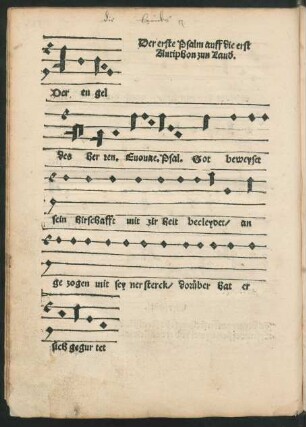 Der erste Psalm auff die erst
Antiphon zun Laud.
Der en gel
des her ren. Euouae. Psal. Got beweyset
sein hirschafft mit zir heit becleydet/ an
ge zogen mit sey ner sterck/ dorüber hat er
sich gegur tet